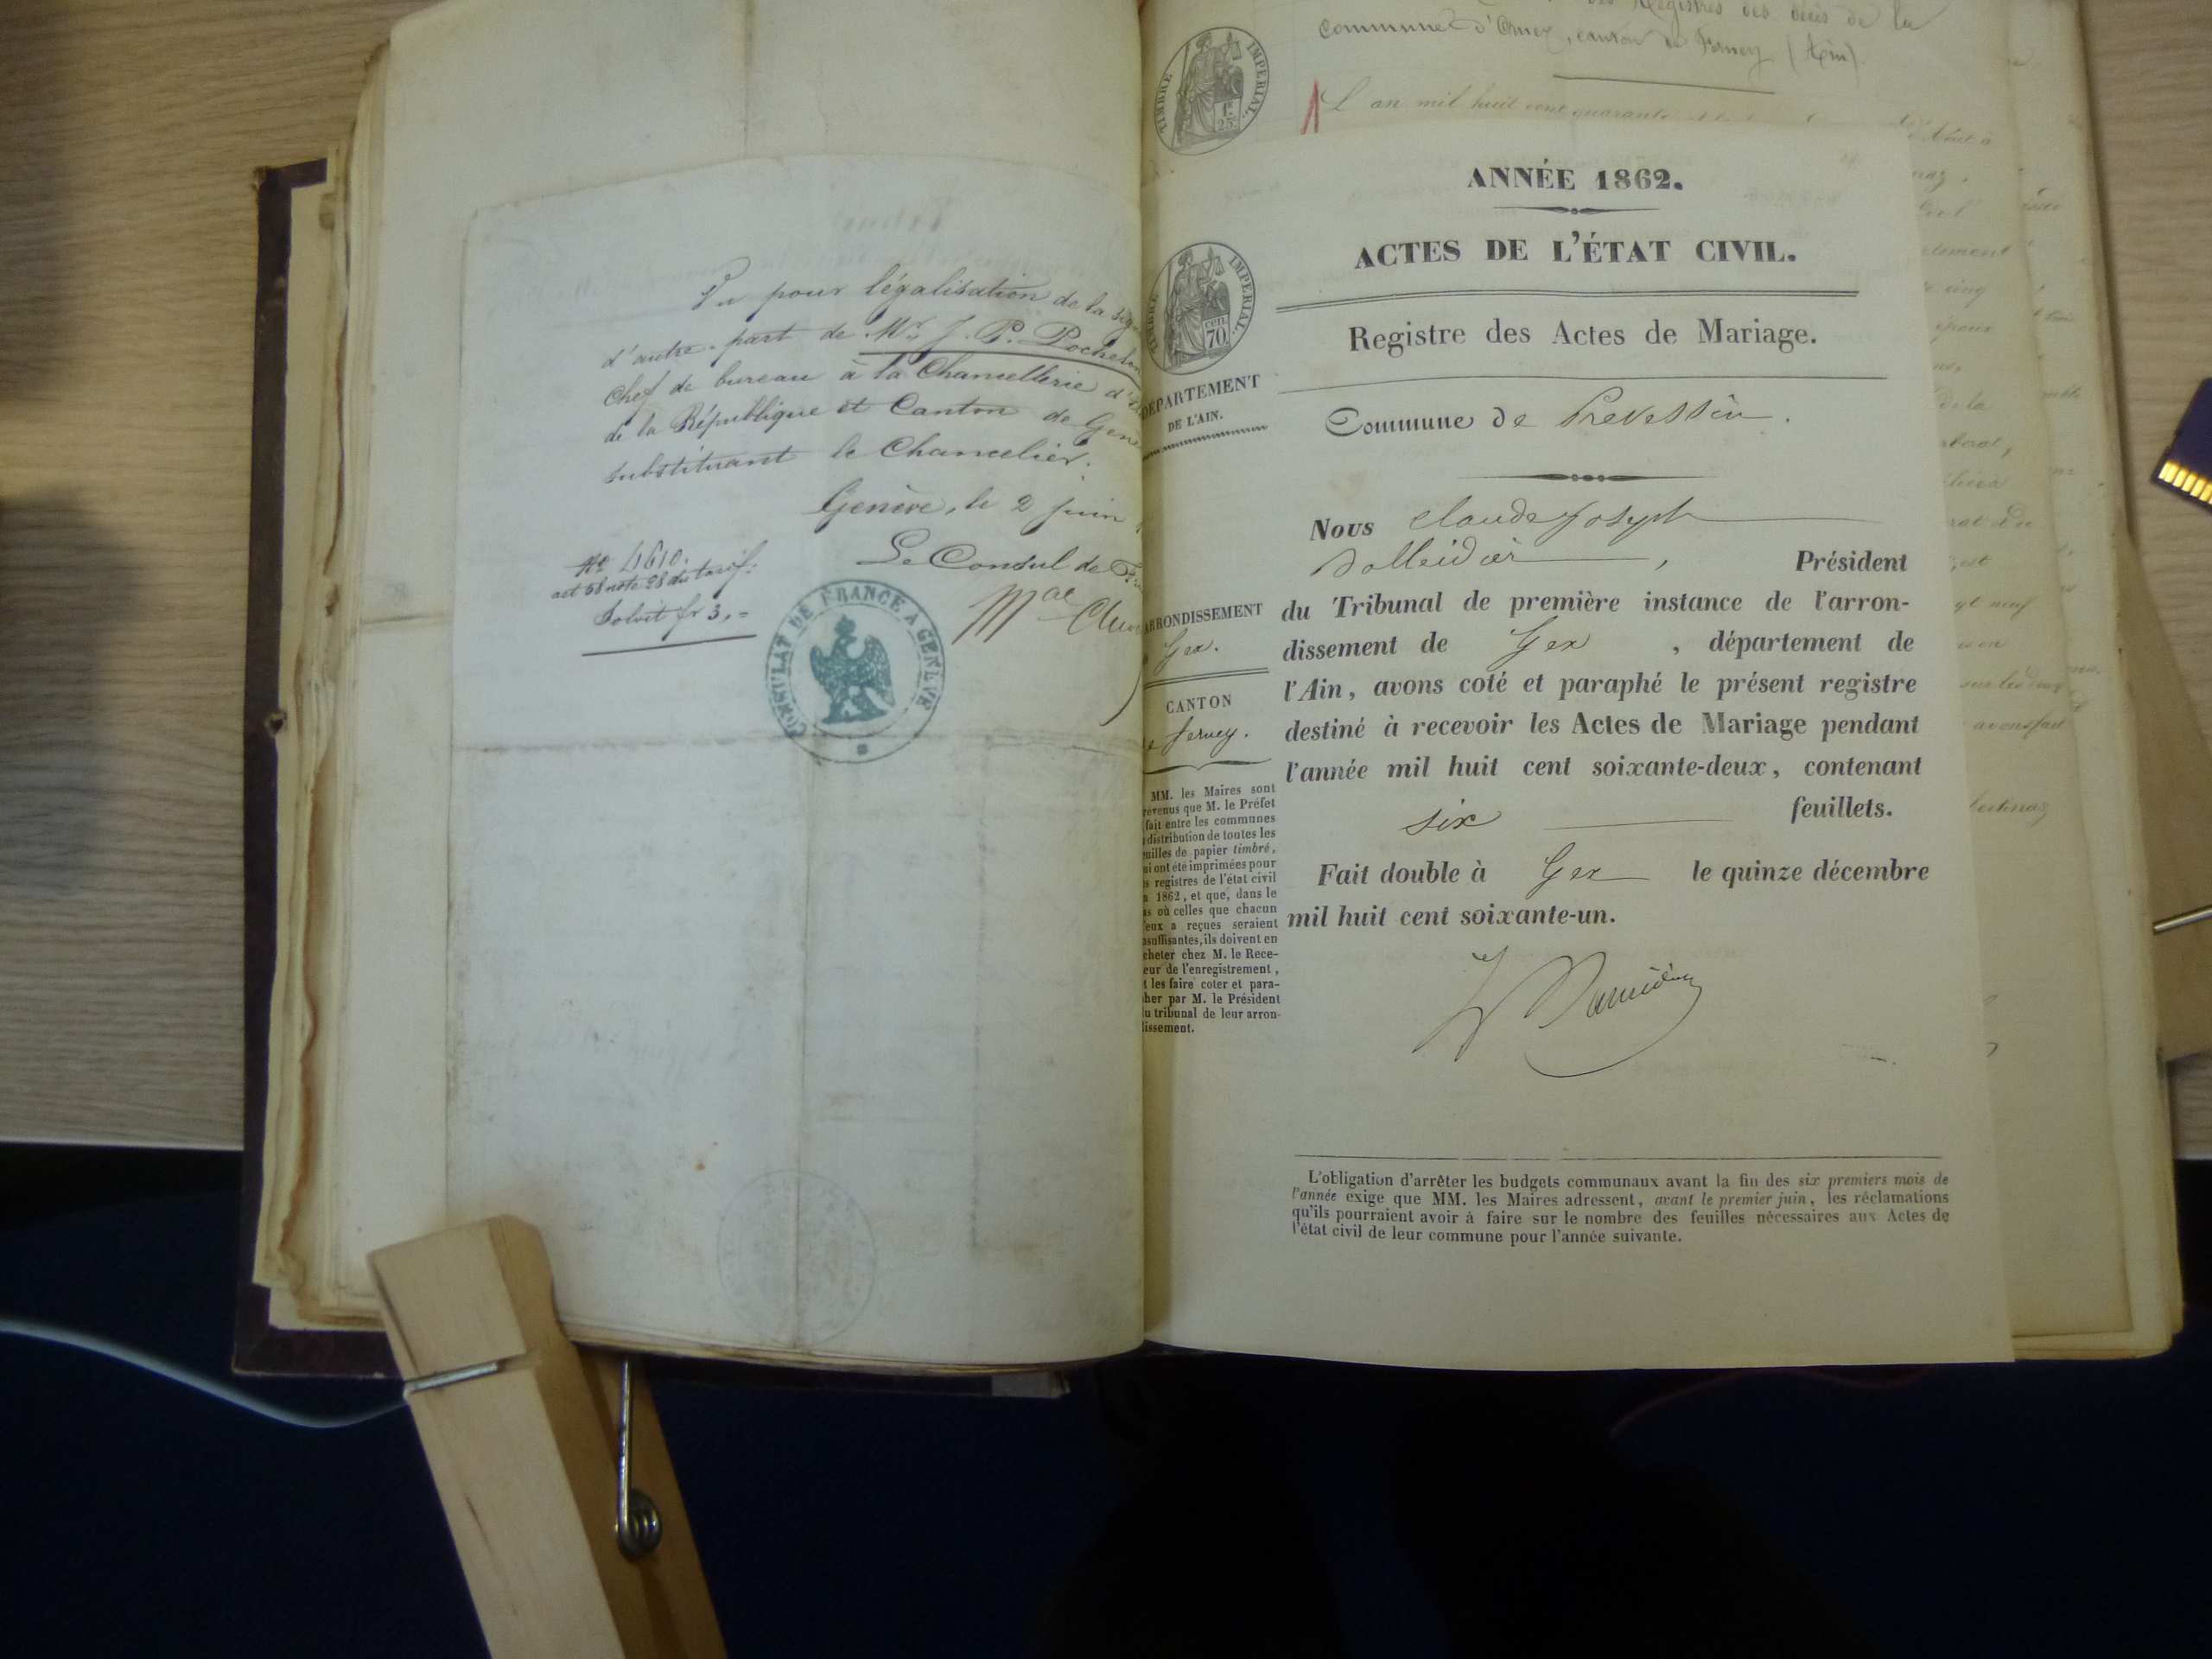 Vu pour légalisation de la
d'autre part de Mr. J. P. Pochelon
Chef de bureau à la Chancellerie
de la République et Canton de
substituant le Chancelier.
Genève, le 2 juin
Le Consul de
No 4610.
art 58 note 28 du tarif:
Solvit fr 3,=
CONSULAT DE FRANCE A GENÈVE
des Registres des décès de la
Commune d'Ornex, canton de Ferney (Ain)
L'an mil huit cent quarante
TIMBRE IMPERIAL.
1F. 25C.
ANNÉE 1862.
ACTES DE L'ÉTAT CIVIL.
Registre des Actes de Mariage.
TIMBRE IMPERIAL.
cen. 70
DÉPARTEMENT
DE L'AIN.
Commune de Prevessin.
Nous Claude Joseph
, Président
du Tribunal de première instance de l'arron-
dissement de Gex , département de
l'Ain, avons coté et paraphé le présent registre
destiné à recevoir les Actes de Mariage pendant
l'année mil huit cent soixante-deux, contenant
six feuillets.
Fait double à Gex le quinze décembre
mil huit cent soixante-un.
ARRONDISSEMENT
Gex.
CANTON
de Ferney.
MM. les Maires sont
prévenus que M. le Préfet
fait entre les communes
distribution de toutes les
feuilles de papier timbré,
qui ont été imprimées pour
les registres de l'état civil
1862, et que, dans le
cas où celles que chacun
d'eux a reçues seraient
insuffisantes, ils doivent en
acheter chez M. le Rece-
veur de l'enregistrement,
et les faire coter et para-
pher par M. le Président
du tribunal de leur arron-
dissement.
L'obligation d'arrêter les budgets communaux avant la fin des six premiers mois de
l'année exige que MM. les Maires adressent, avant le premier juin, les réclamations
qu'ils pourraient avoir à faire sur le nombre des feuilles nécessaires aux Actes de
l'état civil de leur commune pour l'année suivante.